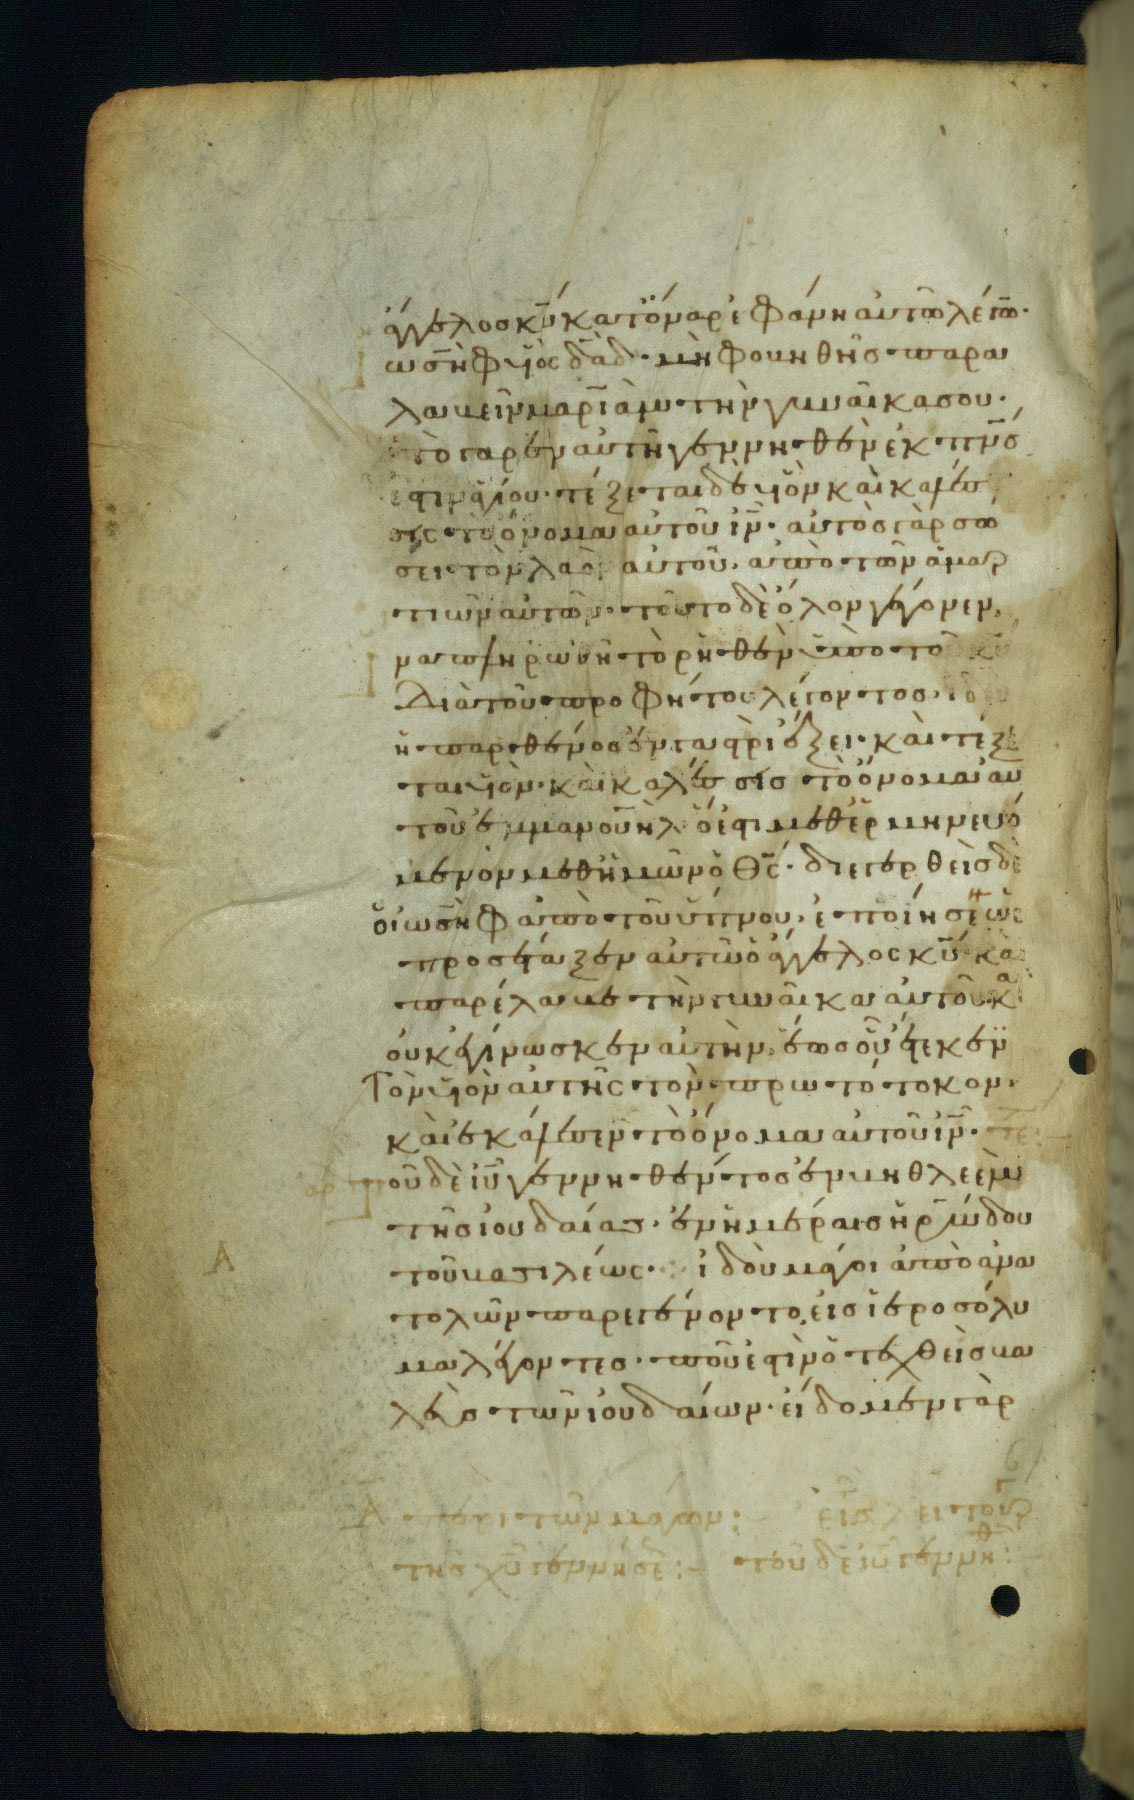 ἄγγελος κ̅υ̅ κατ᾽ ὄναρ ἐφάνη αὐτῶ λέγω̅·
ἰωσὴφ υἱὸς δ̅α̅δ̅· μὴ φοβηθῆς παρα
λαβεῖν μαριὰμ τὴν γυναῖκα σου·
τὸ γαρ ἐν αὐτῆ γεννηθὲν ἐκ π̅ν̅ς̅
ἐστιν ἁγίου· τέξεται δὲ υἱὸν καὶ καλέσ
εις τὸ ὄνομα αὐτοῦ ι̅ν̅· αὐτὸς γὰρ σώ
σει τὸν λαὸν αὐτοῦ· ἀπὸ τῶν ἁμαρ
τιῶν αὐτῶν· τοῦτο δὲ ὅλον γέγονεν,
ἵνα πληρωθῆ τὸ ῥηθὲν ὑπὸ τοῦ κ̅υ̅
διὰ τοῦ προφήτου λέγοντος· ἰδοὺ
ἡ παρθένος ἐν γαστρὶ ἕξει· καὶ τέξε
ται υἱὸν· καὶ καλέσεις τὸ ὄνομα αὐ
τοῦ ἐμμανουὴλ ὅ ἐστι μεθερμηνευό
μενον μεθ᾽ ἡμῶν ὁ θ̅ς̅· διεγερθεὶς δὲ
ὁ ἰωσὴφ ἀπὸ τοῦ ὕπνου· ἐποίησεν ὡς
προσέταξεν αὐτῶ ὁ ἄγγελος κ̅υ̅· καὶ
παρέλαβε τὴν γυναῖκα αὐτοῦ· κ̀
οὐκ ἐγίνωσκεν αὐτὴν, ἕως οὗ ἔτεκεν
τὸν υἱὸν αὐτῆς τὸν πρωτότοκον·
καὶ ἐκάλεσεν τὸ ὄνομα αὐτοῦ ι̅ν̅· τε
τοῦ δὲ ι̅υ̅ γεννηθέντος ἐν βηθλεὲμ
τῆς ἰουδαίας· ἐν ἡμέραις ἡρώδου
τοῦ βασιλέως· ἰδοὺ μάγοι ἀπὸ ἀνα
τολῶν παρεγένοντο εἰς ἱεροσόλυ
μα λέγοντες· ποῦ ἐστὶν ὁ τεχθεὶς βα
σιλεὺς τῶν ἰουδαίων· εἴδομεν γὰρ
Α περὶ τῶν μάγων: εἰς λει τοῦ
τῆς χ̅υ̅ γεννήσε:– τοῦ δὲ ι̅υ̅ γεννηθ: